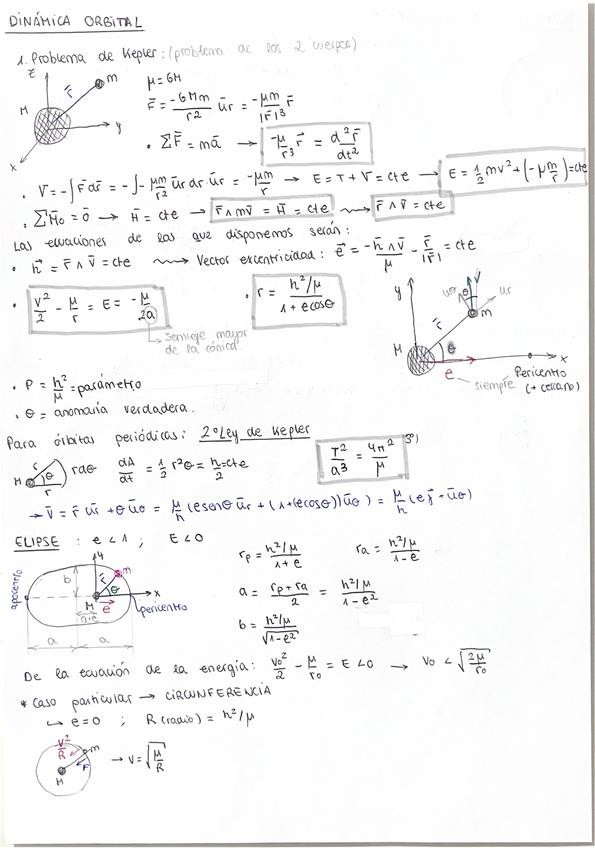 DINÁMICA ORBITAL
1. Problema de Kepler: (problema de los 2 cuerpos)
z
r̄
m
M
y
x
μ = GM
F̄ = -GMm/r² ūr = -μm/|r̄|³ r̄
· ΣF̄ = mā → -μ/r³ r̄ = d²r̄/dt²
· V = -∫F̄dr̄ = -∫-μm/r² ūr dr·ūr = -μm/r → E = T + V = cte → E = 1/2 mv² + (-μm/r) = cte
· ΣM̄o = ō → H̄ = cte → r̄ ∧ mv̄ = H̄ = cte ⇝ r̄ ∧ v̄ = cte
Las ecuaciones de las que disponemos serán:
· h̄ = r̄ ∧ v̄ = cte ⇝ Vector excentricidad: ē = -h̄ ∧ v̄/μ - r̄/|r̄| = cte
· v²/2 - μ/r = E = -μ/2a
· r = h²/μ / 1 + e cosθ
Semieje mayor
de la cónica.
y
uθ
θ
v
ur
m
r̄
M
θ
x
e
siempre
Pericentro
(+ cercano)
· P = h²/μ = parámetro
· θ = anomaría verdadera.
Para órbitas periódicas: 2º Ley de Kepler
T²/a³ = 4π²/μ
3º)
M
r
θ
rdθ
dA/dt = 1/2 r²θ = h/2 = cte
→ V̄ = r̄ ūr + θ ūθ = μ/h (e senθ ūr + (1+(e cosθ)) ūθ) = μ/h (e j̄ + ūθ)
ELIPSE : e < 1 ; E < 0
apocentro
y
b
r̄
m
θ
x
M
ē
a·e
pericentro
a
a
rp = h²/μ / 1 + e
ra = h²/μ / 1 - e
a = rp + ra / 2 = h²/μ / 1 - e²
b = h²/μ / √1 - e²
De la ecuación de la energía: vo²/2 - μ/ro = E < 0 → Vo < √2μ/ro
* Caso particular → CIRCUNFERENCIA
↳ e = 0 ; R (radio) = h²/μ
V²/R
m
F
M
→ V = √μ/R